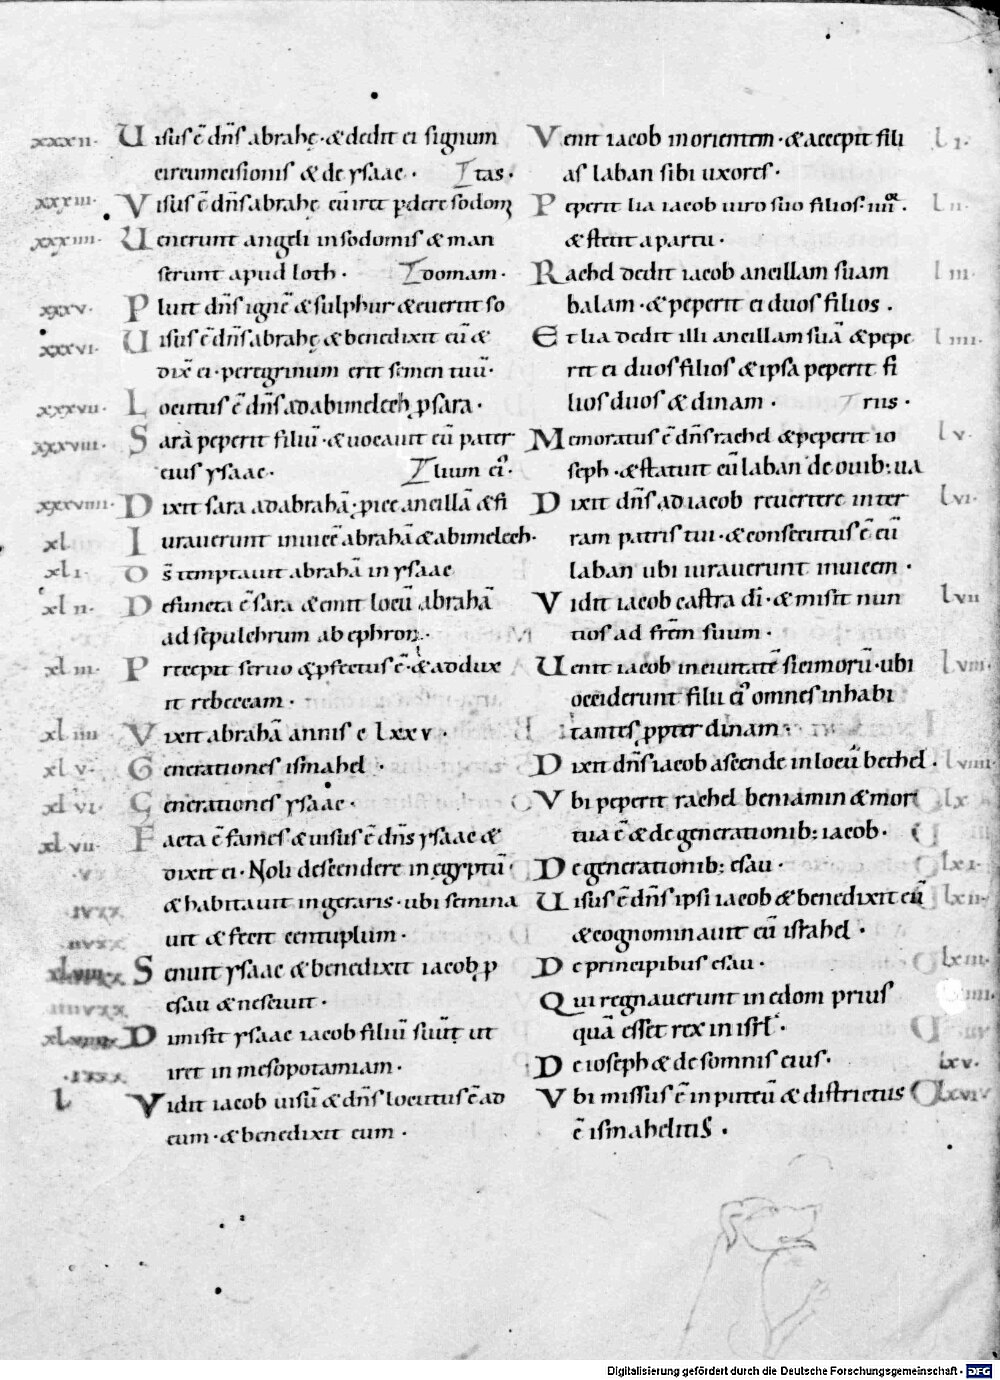 xxxii· Uisus ē dn̄s abrahę· & dedit ei signum
circumcisionis & de ysaac· tas·
xxxiii· Visus ē dn̄s abrahę cū iret pdere sodom
xxxiiii· Uenerunt angeli in sodomis & man
serunt apud loth· domam·
xxxv· Pluit dn̄s ignē & sulphur & euertit so
xxxvi· Uisus ē dn̄s abrahę & benedixit eū &
dix̄ ei· peregrinum erit semen tuū·
xxxvii· Locutus ē dn̄s ad abimelech p sara·
xxxviii· Sara peperit filiū· & uocauit eū pater
eius ysaac· lium ei᷒·
xxxviiii· Dixit sara ad abrahā· piice ancillā & fi
xl Iurauerunt inuicē abrahā & abimelech·
xli· Ds̄ temptauit abrahā in ysaac
xlii· Defuncta ē sara & emit locū abrahā
ad sepulchrum ab ephron·
xliii· Precepit seruo & pfectus ē· & addux
it rebeccam·
xliiii Vixit abrahā annis c lxxv·
xlv· Generationes ismahel·
xlvi· Generationes ysaac·
xlvii· Facta ē fames & uisus ē dn̄s ysaac &
dixit ei· Noli descendere in egyptū·
& habitauit in geraris· ubi semina
uit & fecit centuplum·
xlviii· Senuit ysaac & benedixit iacob p
esau & nesciuit·
xlviiii· Dimisit ysaac iacob filiū suū ut
iret in mesopotamiam·
l Vidit iacob uisū & dn̄s locutus ē ad
eum· & benedixit eum·
Venit iacob in orientem· & accepit fili li·
as laban sibi uxores·
Peperit lia iacob uiro suo filios· iiii· lii·
& stetit a partu·
Rachel dedit iacob ancillam suam liii
balam· & peperit ei duos filios·
Et lia dedit illi ancillam suā & pepe liiii·
rit ei duos filios & ipsa peperit fi
lios duos & dinam· rus·
Memoratus ē dn̄s rachel & peperit io lv·
seph· & statuit eū laban de ouib: ua
Dixit dn̄s ad iacob reuertere in ter lvi·
ram patris tui· & consecutus ē eū
laban ubi iurauerunt inuicem·
Vidit iacob castra dī· & misit nun lvii
tios ad frēm suum·
Uenit iacob in ciuitatē sicimorū· ubi lviii·
occiderunt filii ei᷒ omnes inhabi
tantes ppter dinam·
Dixit dn̄s iacob ascende in locū bethel· lviiii·
Vbi peperit rachel beniamin & mor lx
tua ē & de generationib: iacob·
De generationib: esau· lxi·
Uisus ē dn̄s ipsi iacob & benedixit eū lxii·
& cognominauit eū israhel·
De principibus esau· lxiii·
Qui regnauerunt in edom prius iiii·
quā esset rex in isrl·
De ioseph & de somnis eius· lxv·
Vbi missus ē in puteū & districtus lxvi
ē ismahelitis·
Digitalisierung gefördert durch die Deutsche Forschungsgemeinschaft - DFG